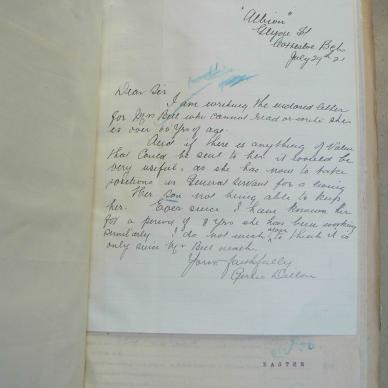 "Albion"
July 29th 21
Dear Sir
I am writing the enclosed letter
for Mrs Bell who cannot read or write she
is over 60 yrs of age.
And if there is anything of value
that could be sent to her it would be
very useful, as she has now to take
positions as General Servant for a living
Her son not being able to keep
her. Ever since I have known her
for a period of 8 yrs she has been working
similarly I do not wish to think it is
only since Mr Bell's death.
Yours faithfully
EASTER